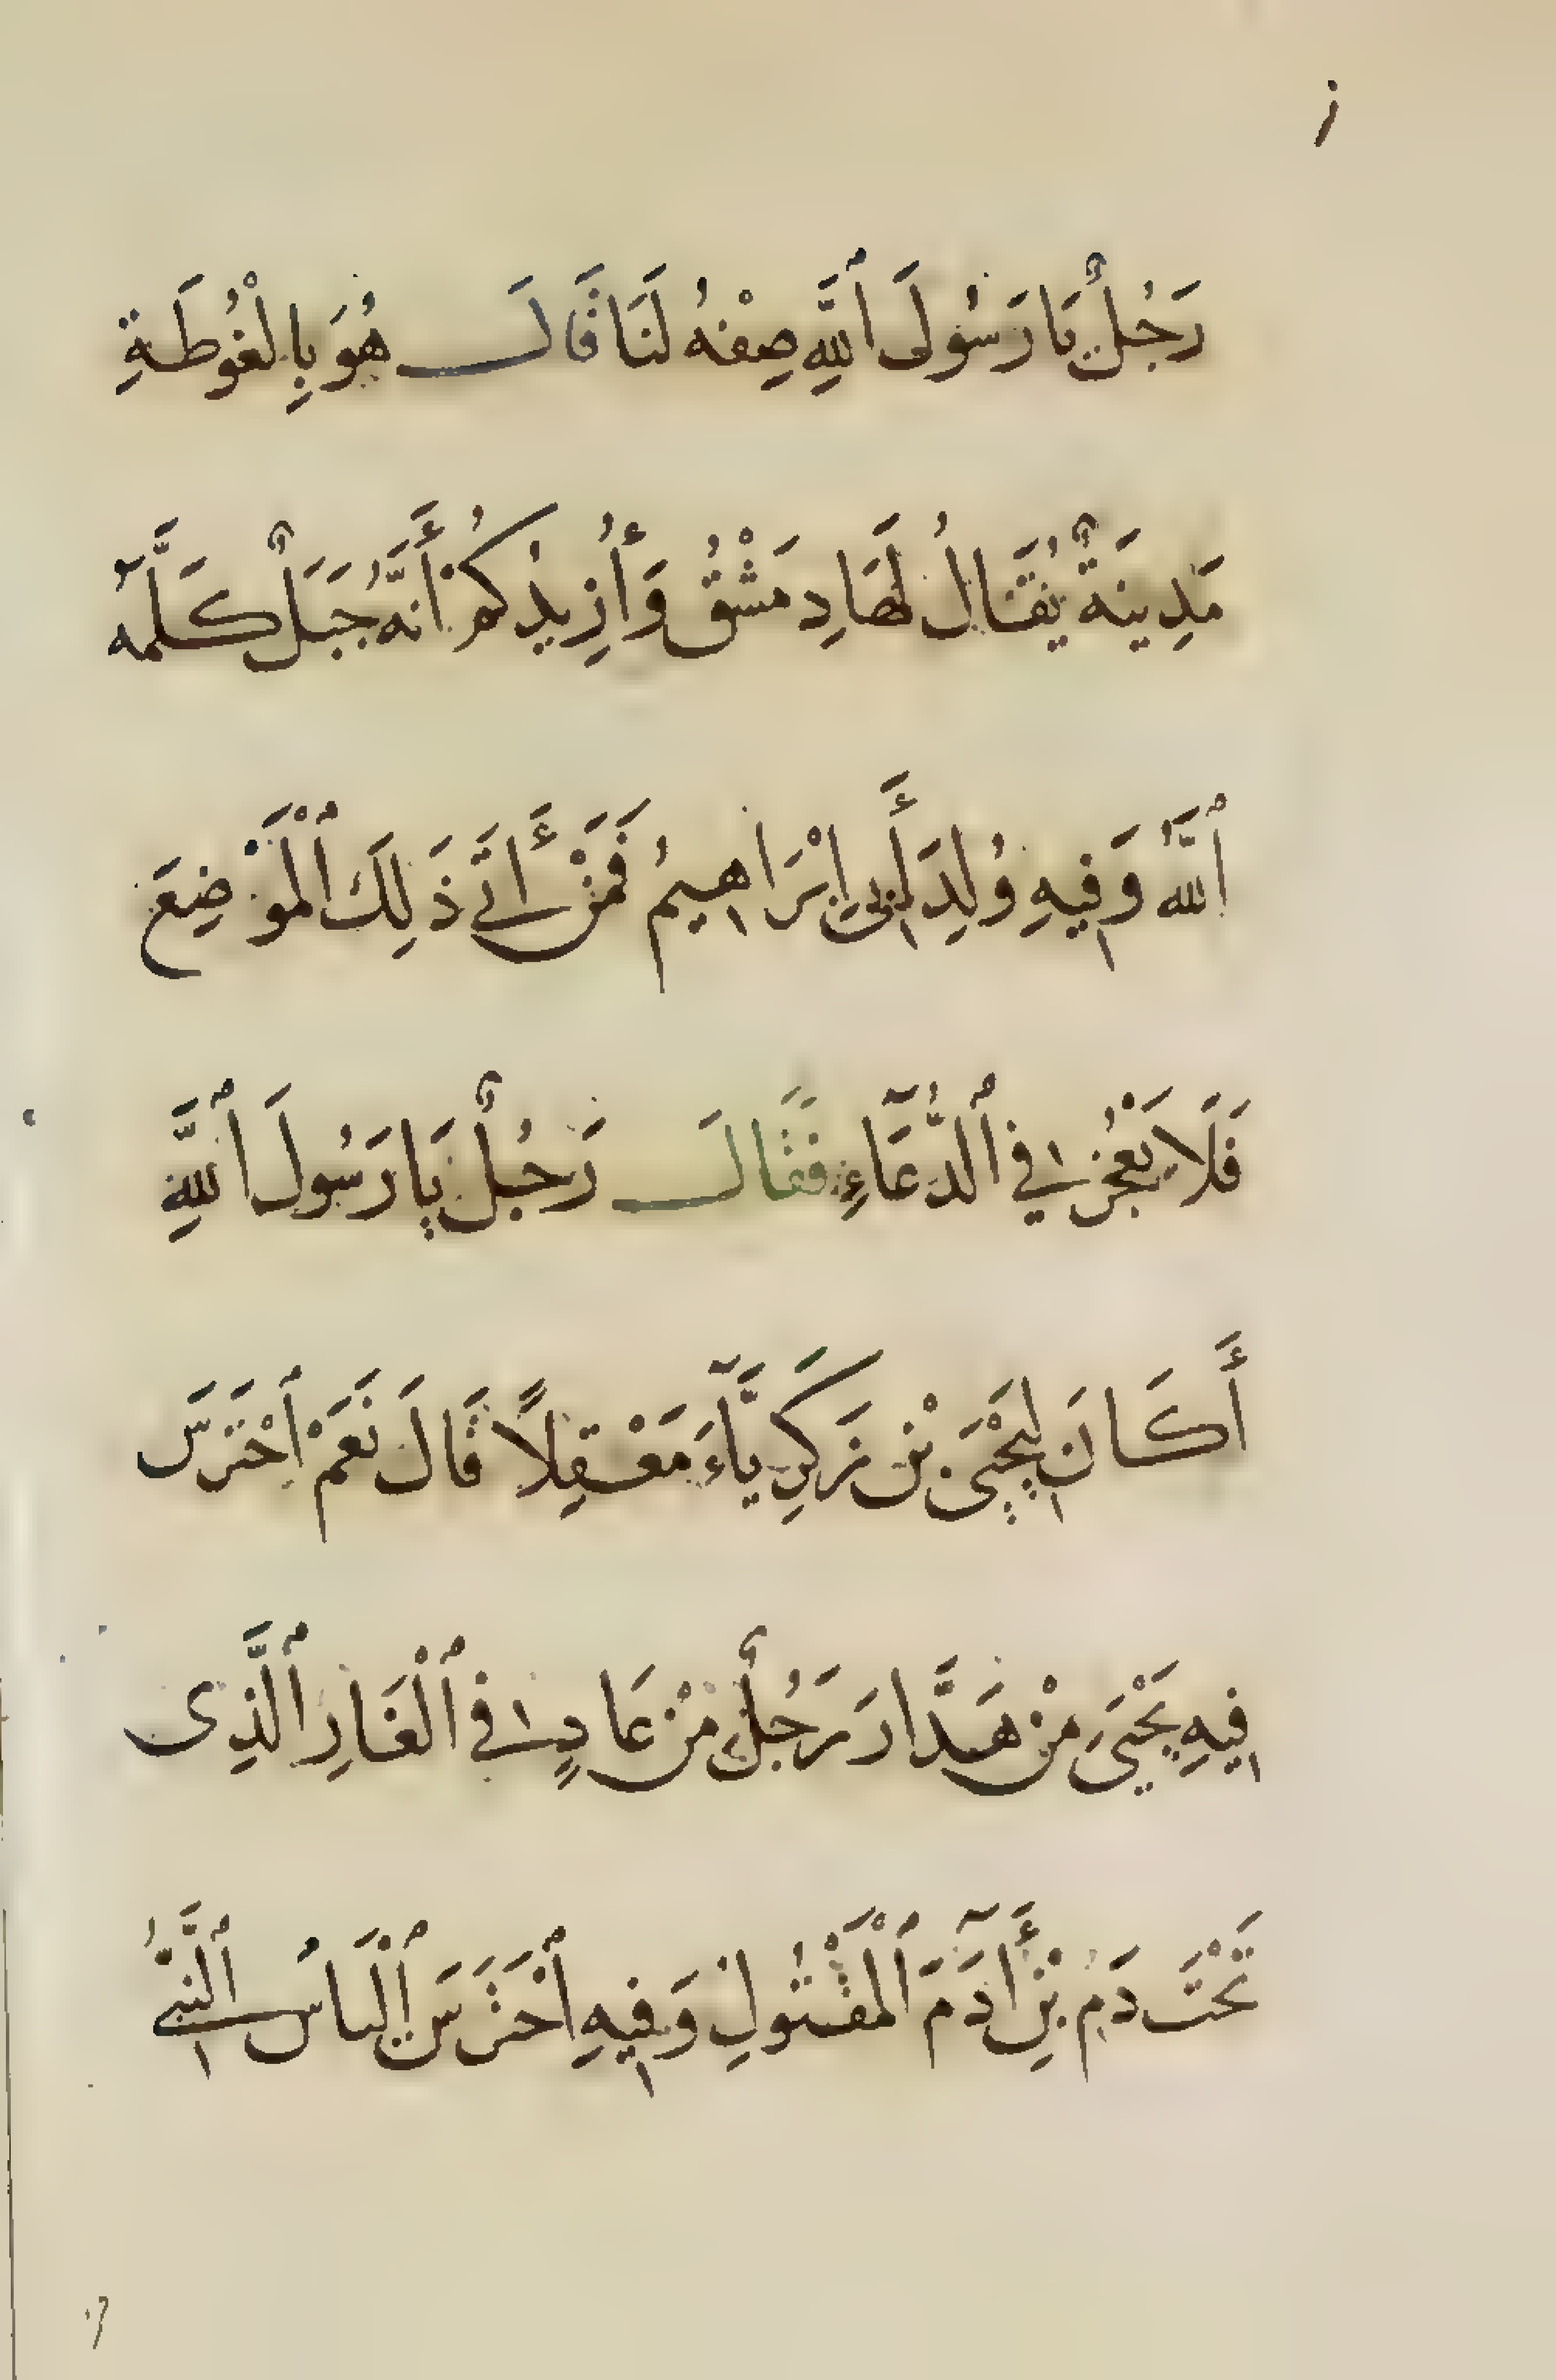 رَجُلٌ يَا رَسُولَ ٱللَّهِ صِفْهُ لَنَا قَالَ هُوَ بِالْغُوطَةِ
مَدِينَةٌ يُقَالُ لَهَا دِمَشْقُ وَأُزِيدُكُمْ أَنَّهُ جَبَلٌ كَلَّمَهُ
ٱللَّهُ وَفِيهِ وُلِدَ أَبِي إِبْرَاهِيمُ فَمَنْ أَتَى ذَلِكَ ٱلْمَوْضِعَ
فَلَا يَعْجُزْ فِي ٱلدُّعَآءِ فَقَالَ رَجُلٌ يَا رَسُولَ ٱللَّهِ
أَكَانَ لِيَحْيَى بْنِ زَكَرِيَّآءَ مَعْقِلًا قَالَ نَعَمْ ٱحْتَرَسَ
فِيهِ يَحْيَى مِنْ هَدَّارَ رَجُلٌ مِنْ عَادٍ فِي ٱلْغَارِ ٱلَّذِى
تَحْتَ دَمِ بْنِ أَآدَمَ ٱلْمَقْتُولِ وَفِيهِ ٱحْتَرَسَ إِلْيَاسُ ٱلنَّبِيُّ